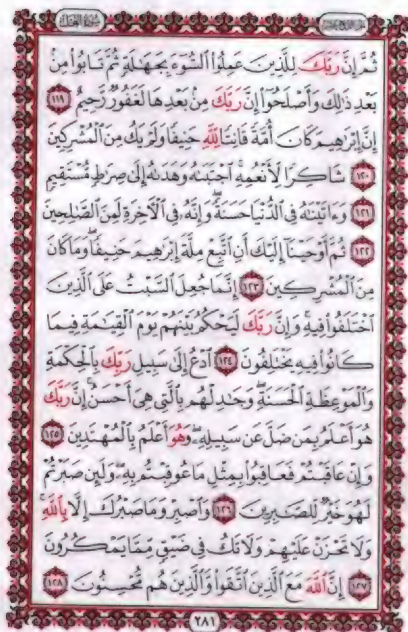 سُورَةُ النَّحْلِ
ثُمَّ إِنَّ رَبَّكَ لِلَّذِينَ عَمِلُوا۟ ٱلسُّوٓءَ بِجَهَـٰلَةٍ ثُمَّ تَابُوا۟ مِنۢ
بَعْدِ ذَٰلِكَ وَأَصْلَحُوٓا۟ إِنَّ رَبَّكَ مِنۢ بَعْدِهَا لَغَفُورٌ رَّحِيمٌ ١١٩
إِنَّ إِبْرَٰهِيمَ كَانَ أُمَّةً قَانِتًا لِّلَّهِ حَنِيفًا وَلَمْ يَكُ مِنَ ٱلْمُشْرِكِينَ
١٢٠ شَاكِرًا لِّأَنْعُمِهِ ۚ ٱجْتَبَىٰهُ وَهَدَىٰهُ إِلَىٰ صِرَٰطٍ مُّسْتَقِيمٍ
١٢١ وَءَاتَيْنَـٰهُ فِى ٱلدُّنْيَا حَسَنَةً ۖ وَإِنَّهُۥ فِى ٱلْـَٔاخِرَةِ لَمِنَ ٱلصَّـٰلِحِينَ
١٢٢ ثُمَّ أَوْحَيْنَآ إِلَيْكَ أَنِ ٱتَّبِعْ مِلَّةَ إِبْرَٰهِيمَ حَنِيفًا ۖ وَمَا كَانَ
مِنَ ٱلْمُشْرِكِينَ ١٢٣ إِنَّمَا جُعِلَ ٱلسَّبْتُ عَلَى ٱلَّذِينَ
ٱخْتَلَفُوا۟ فِيهِ ۚ وَإِنَّ رَبَّكَ لَيَحْكُمُ بَيْنَهُمْ يَوْمَ ٱلْقِيَـٰمَةِ فِيمَا
كَانُوا۟ فِيهِ يَخْتَلِفُونَ ١٢٤ ٱدْعُ إِلَىٰ سَبِيلِ رَبِّكَ بِٱلْحِكْمَةِ
وَٱلْمَوْعِظَةِ ٱلْحَسَنَةِ ۖ وَجَـٰدِلْهُم بِٱلَّتِى هِىَ أَحْسَنُ ۚ إِنَّ رَبَّكَ
هُوَ أَعْلَمُ بِمَن ضَلَّ عَن سَبِيلِهِۦ ۖ وَهُوَ أَعْلَمُ بِٱلْمُهْتَدِينَ ١٢٥
وَإِنْ عَاقَبْتُمْ فَعَاقِبُوا۟ بِمِثْلِ مَا عُوقِبْتُم بِهِۦ ۖ وَلَئِن صَبَرْتُمْ
لَهُوَ خَيْرٌ لِّلصَّـٰبِرِينَ ١٢٦ وَٱصْبِرْ وَمَا صَبْرُكَ إِلَّا بِٱللَّهِ ۚ
وَلَا تَحْزَنْ عَلَيْهِمْ وَلَا تَكُ فِى ضَيْقٍ مِّمَّا يَمْكُرُونَ
١٢٧ إِنَّ ٱللَّهَ مَعَ ٱلَّذِينَ ٱتَّقَوا۟ وَّٱلَّذِينَ هُم مُّحْسِنُونَ ١٢٨
٢٨١